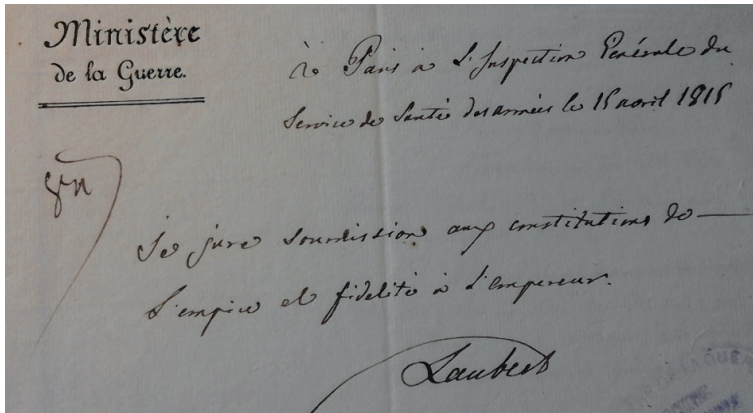 Ministère
de la Guerre.
à Paris à l'Inspection Générale du
Service de Santé des armées le 15 avril 1815
Je jure soumission aux constitutions de
l'empire et fidelité à l'empereur.
Laubert